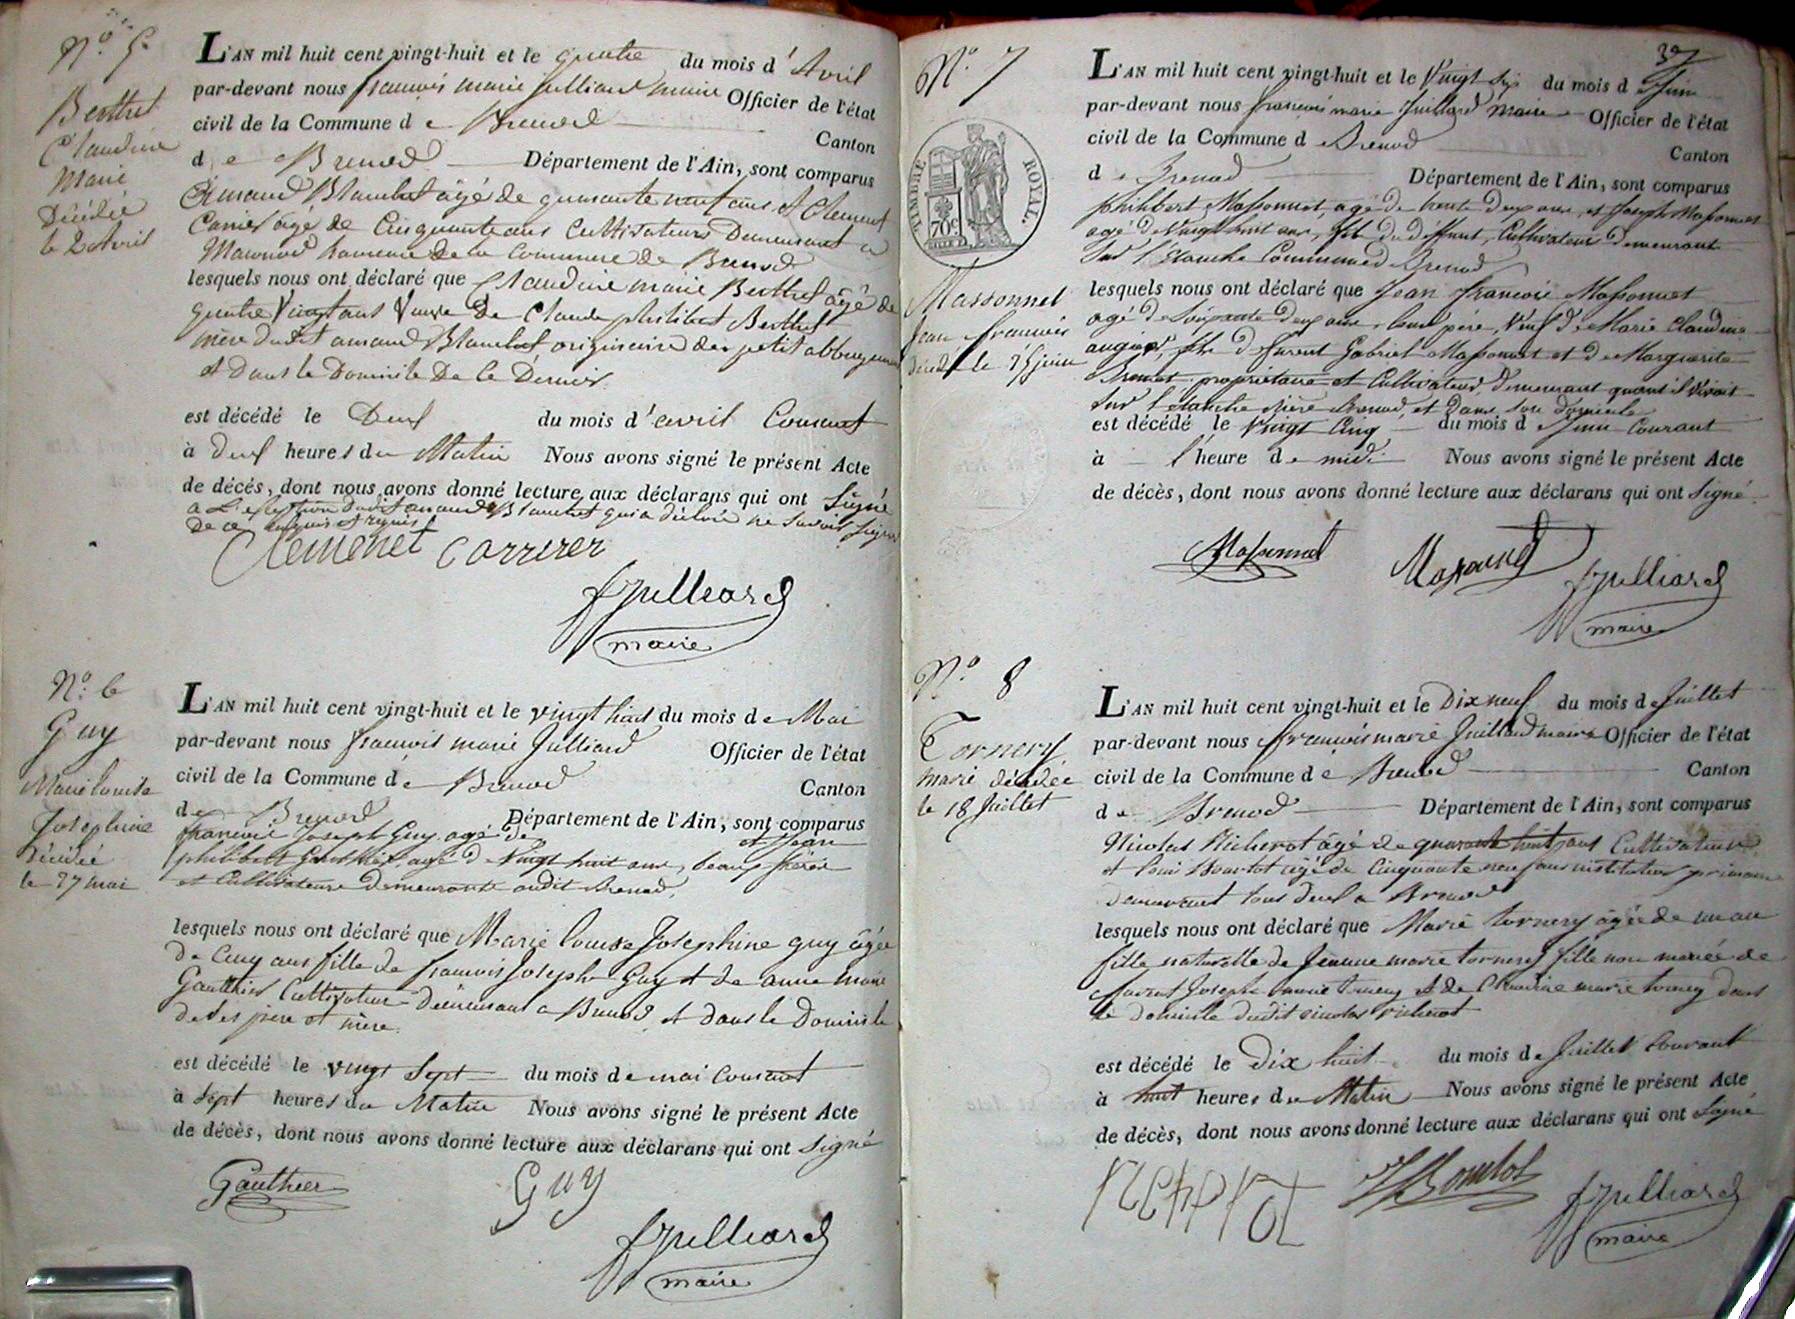 N.º 5
Berthet
Claudine
Marie
Décédée
le 2 avril
L'AN mil huit cent vingt-huit et le quatre du mois d'Avril
par-devant nous françois marie Julliard maire Officier de l'état
civil de la Commune de Brenod
Canton
de Brenod Département de l'Ain, sont comparus
Amand Blanchet âgé de quarante neuf ans et Clement
Carrier âgé de Cinquante ans Cultivateurs Demeurant a
hameau de la Commune de Brenod
lesquels nous ont déclaré que Claudine marie Berthet âgé de
quatre Vingt ans Veuve De Claude philibert Berthet
mère dudit amand Blanchet originaire du petit abbergement
et dans le Domicile De Ce Dernier
est décédé le Deux du mois d'avril Courant
à Deux heures du Matin Nous avons signé le présent Acte
de décés, dont nous avons donné lecture aux déclarans qui ont Signé
a L'exception dudit amand Blanchet qui a déclaré ne savoir signer
De ce enquis et requis
Clemenet Carrirer
fJulliard
maire
N.º 6
Guy
Marie Louise
Josephine
Décédée
le 27 mai
L'AN mil huit cent vingt-huit et le vingt huit du mois de Mai
par-devant nous françois marie Julliard Officier de l'état
civil de la Commune de Brenod
Canton
de Brenod Département de l'Ain, sont comparus
françois Joseph Guy agé de et Jean
philibert Gauthier agé de Vingt huit ans, beaux frères
et Cultivateurs demeurants audit Brenod,
lesquels nous ont déclaré que Marie Louise Josephine guy âgée
de Cinq ans fille de françois Joseph Guy et de anne marie
Gauthier Cultivateur Demeurant a Brenod et dans le Domicile
de ses père et mère.
est décédé le vingt Sept du mois de mai Courant
à Sept heures du Matin Nous avons signé le présent Acte
de décès, dont nous avons donné lecture aux déclarans qui ont signé
Gauthier Guy
fJulliard
maire
37
N.º 7
TIMBRE ROYAL.
70c
Massonnet
Jean françois
décédé le 25 juin
L'AN mil huit cent vingt-huit et le Vingt Six du mois d Juin
par-devant nous françois marie Juilliard maire Officier de l'état
civil de la Commune de Brenod
Canton
de Brenod Département de l'Ain, sont comparus
philibert Massonnet, agé de trente deux ans, et Joseph Massonnet
agé de Vingt huit ans, fils du deffunt, Cultivateur demeurant
Sur l'Etanche Commune de Brenod
lesquels nous ont déclaré que Jean francois Massonnet
agé de Soixante deux ans, leur père, Veuf de Marie Claudine
fils de furent Gabriel Massonnet et de Marguerite
propriétaire et Cultivateur, demeurant quand il vivait
Sur l'Etanche rière Brenod, et Dans Son Domicile
est décédé le Vingt Cinq du mois de Juin Courant
à l'heure de midi Nous avons signé le présent Acte
de décès, dont nous avons donné lecture aux déclarans qui ont Signé
Massonnet Massonnet fJulliard
maire
N.º 8
Tornery
marie décédée
le 18 Juillet
L'AN mil huit cent vingt-huit et le Dix neuf du mois de Juillet
par-devant nous françois marie Juilliard maire Officier de l'état
civil de la Commune de Brenod
Canton
de Brenod Département de l'Ain, sont comparus
Nicolas Richerot âgé de quarante huit ans Cultivateur
et louis âgé de Cinquante neuf ans instituteur primaire
demeurant tous deux a Brenod
lesquels nous ont déclaré que Marie tornery âgée de un an
fille naturelle de Jeanne marie tornery fille non mariée de
furent Joseph marie tornery et de Claudine marie tornery dans
le domicile dudit nicolas richerot
est décédé le Dix huit du mois de Juillet Courant
à huit heures du Matin Nous avons signé le présent Acte
de décès, dont nous avons donné lecture aux déclarans qui ont Signé
fJulliard
maire